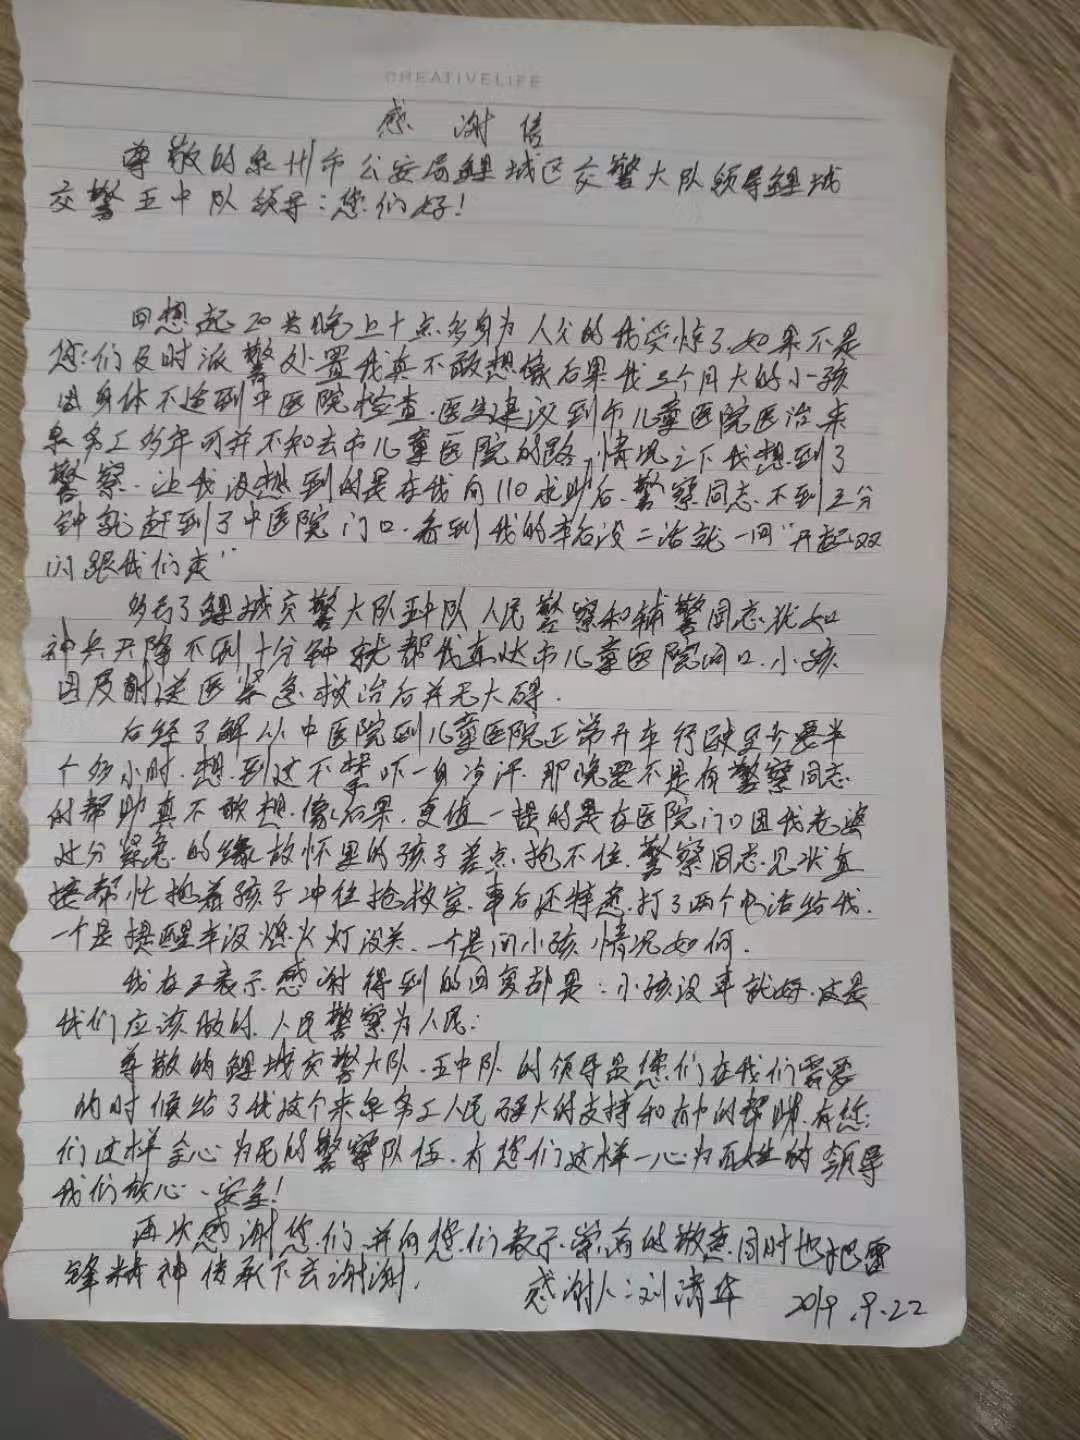 CREATIVELIFE
感谢信
尊敬的泉州市公安局鲤城区交警大队领导鲤城
交警五中队领导:您们好!
回想起20号晚上十点多身为人父的我受惊了.如果不是
您们及时派警处置我真不敢想像后果我三个月大的小孩
因身体不适到中医院检查.医生建议到市儿童医院医治来
泉务工多年可并不知去市儿童医院的路,情况之下我想到了
警察.让我没想到的是在我向110求助后.警察同志不到五分
钟就赶到了中医院门口.看到我的车后没二话就一问"开起双
闪跟我们走"
多亏了鲤城交警大队五中队人民警察和辅警同志犹如
神兵天降不到十分钟就帮我直达市儿童医院门口.小孩
因及时送医紧急救治后并无大碍.
后经了解从中医院到儿童医院正常开车行驶至少要半
个多小时.想到这不禁吓一身冷汗.那晚要不是有警察同志
的帮助真不敢想像后果.更值一提的是在医院门口因我老婆
过分紧急的缘故怀里的孩子差点抱不住.警察同志见状直
接帮忙抱着孩子冲往抢救室.事后还特意打了两个电话给我.
一个是提醒车没熄火灯没关.一个是问小孩情况如何.
我在三表示感谢得到的回复却是:小孩没事就好.这是
我们应该做的.人民警察为人民:
尊敬的鲤城交警大队.五中队的领导是您们在我们需要
的时候给了我这个来泉务工人民强大的支持和有力的帮助.有您
们这样全心为民的警察队伍.有您们这样一心为百姓的领导
我们放心、安全!
再次感谢您们.并向您们表示崇高的敬意.同时也把雷
锋精神传承下去谢谢.
感谢人:刘清华 2019.9.22